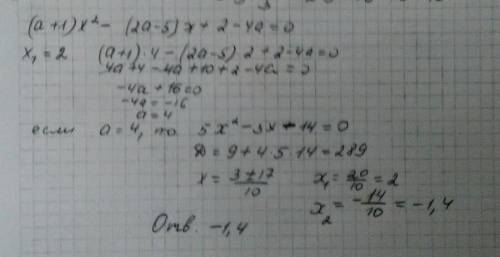 (a+1)x² - (2a-5)x + 2 - 4a = 0
x₁ = 2 (a+1)·4 - (2a-5)·2 + 2 - 4a = 0
4a + 4 - 4a + 10 + 2 - 4a = 0
-4a + 16 = 0
-4a = -16
a = 4
если a = 4, то 5x² - 3x - 14 = 0
D = 9 + 4·5·14 = 289
x = (3 ± 17)/10 x₁ = 20/10 = 2
x₂ = -14/10 = -1,4
Отв. -1,4